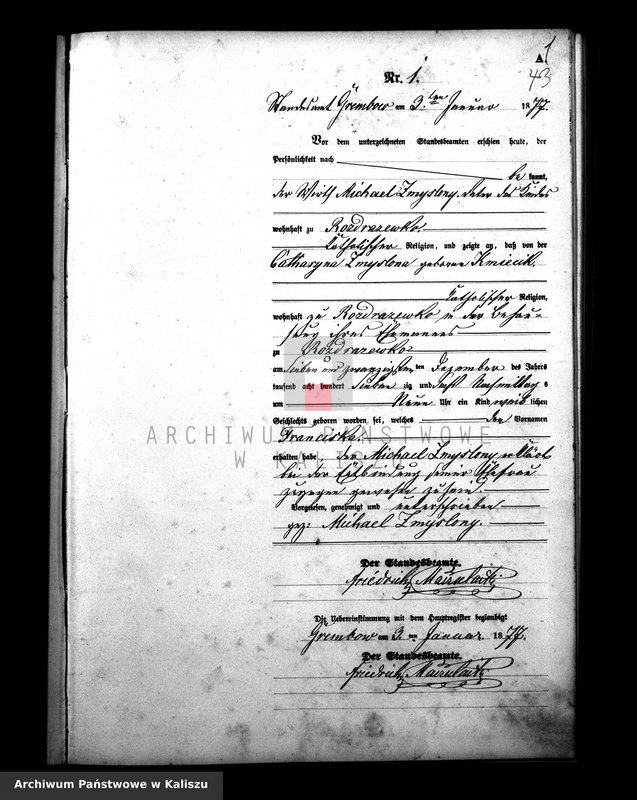 1
A.
43
Nr. 1.
Standesamt Grembow am 3.ten Januar 1877.
Vor dem unterzeichneten Standesbeamten erschien heute, der
Persönlichkeit nach
be kannt,
der Wirth Michael Zmyslony, Vater des Kindes
wohnhaft zu Rozdrazewko
katholischer Religion, und zeigte an, daß von der
Catharyna Zmyslona geborene Kmiecik,
katholischer Religion,
wohnhaft zu Rozdrazewko in der Behau-
sung ihres Ehemannes
zu Rozdrazewko
am sieben und zwanzigsten ten Dezember des Jahrs
tausend acht hundert sieben zig und sechs Nachmittag s
um Neun Uhr ein Kind weib lichen
Geschlechts geboren worden sei, welches den Vornamen
Franciska
erhalten habe, Der Michael Zmyslony erklärt
bei der Entbindung seiner Ehefrau
zugegen gewesen zu sein.
Vorgelesen, genehmigt und unterschrieben
gez: Michael Zmyslony.
Der Standesbeamte.
Friedrich
Die Uebereinstimmung mit dem Hauptregister beglaubigt
Grembow am 3. ten Januar 1877.
Der Standesbeamte.
Friedrich
ARCHIWUM PAŃSTWOWE
W KALISZU
Archiwum Państwowe w Kaliszu